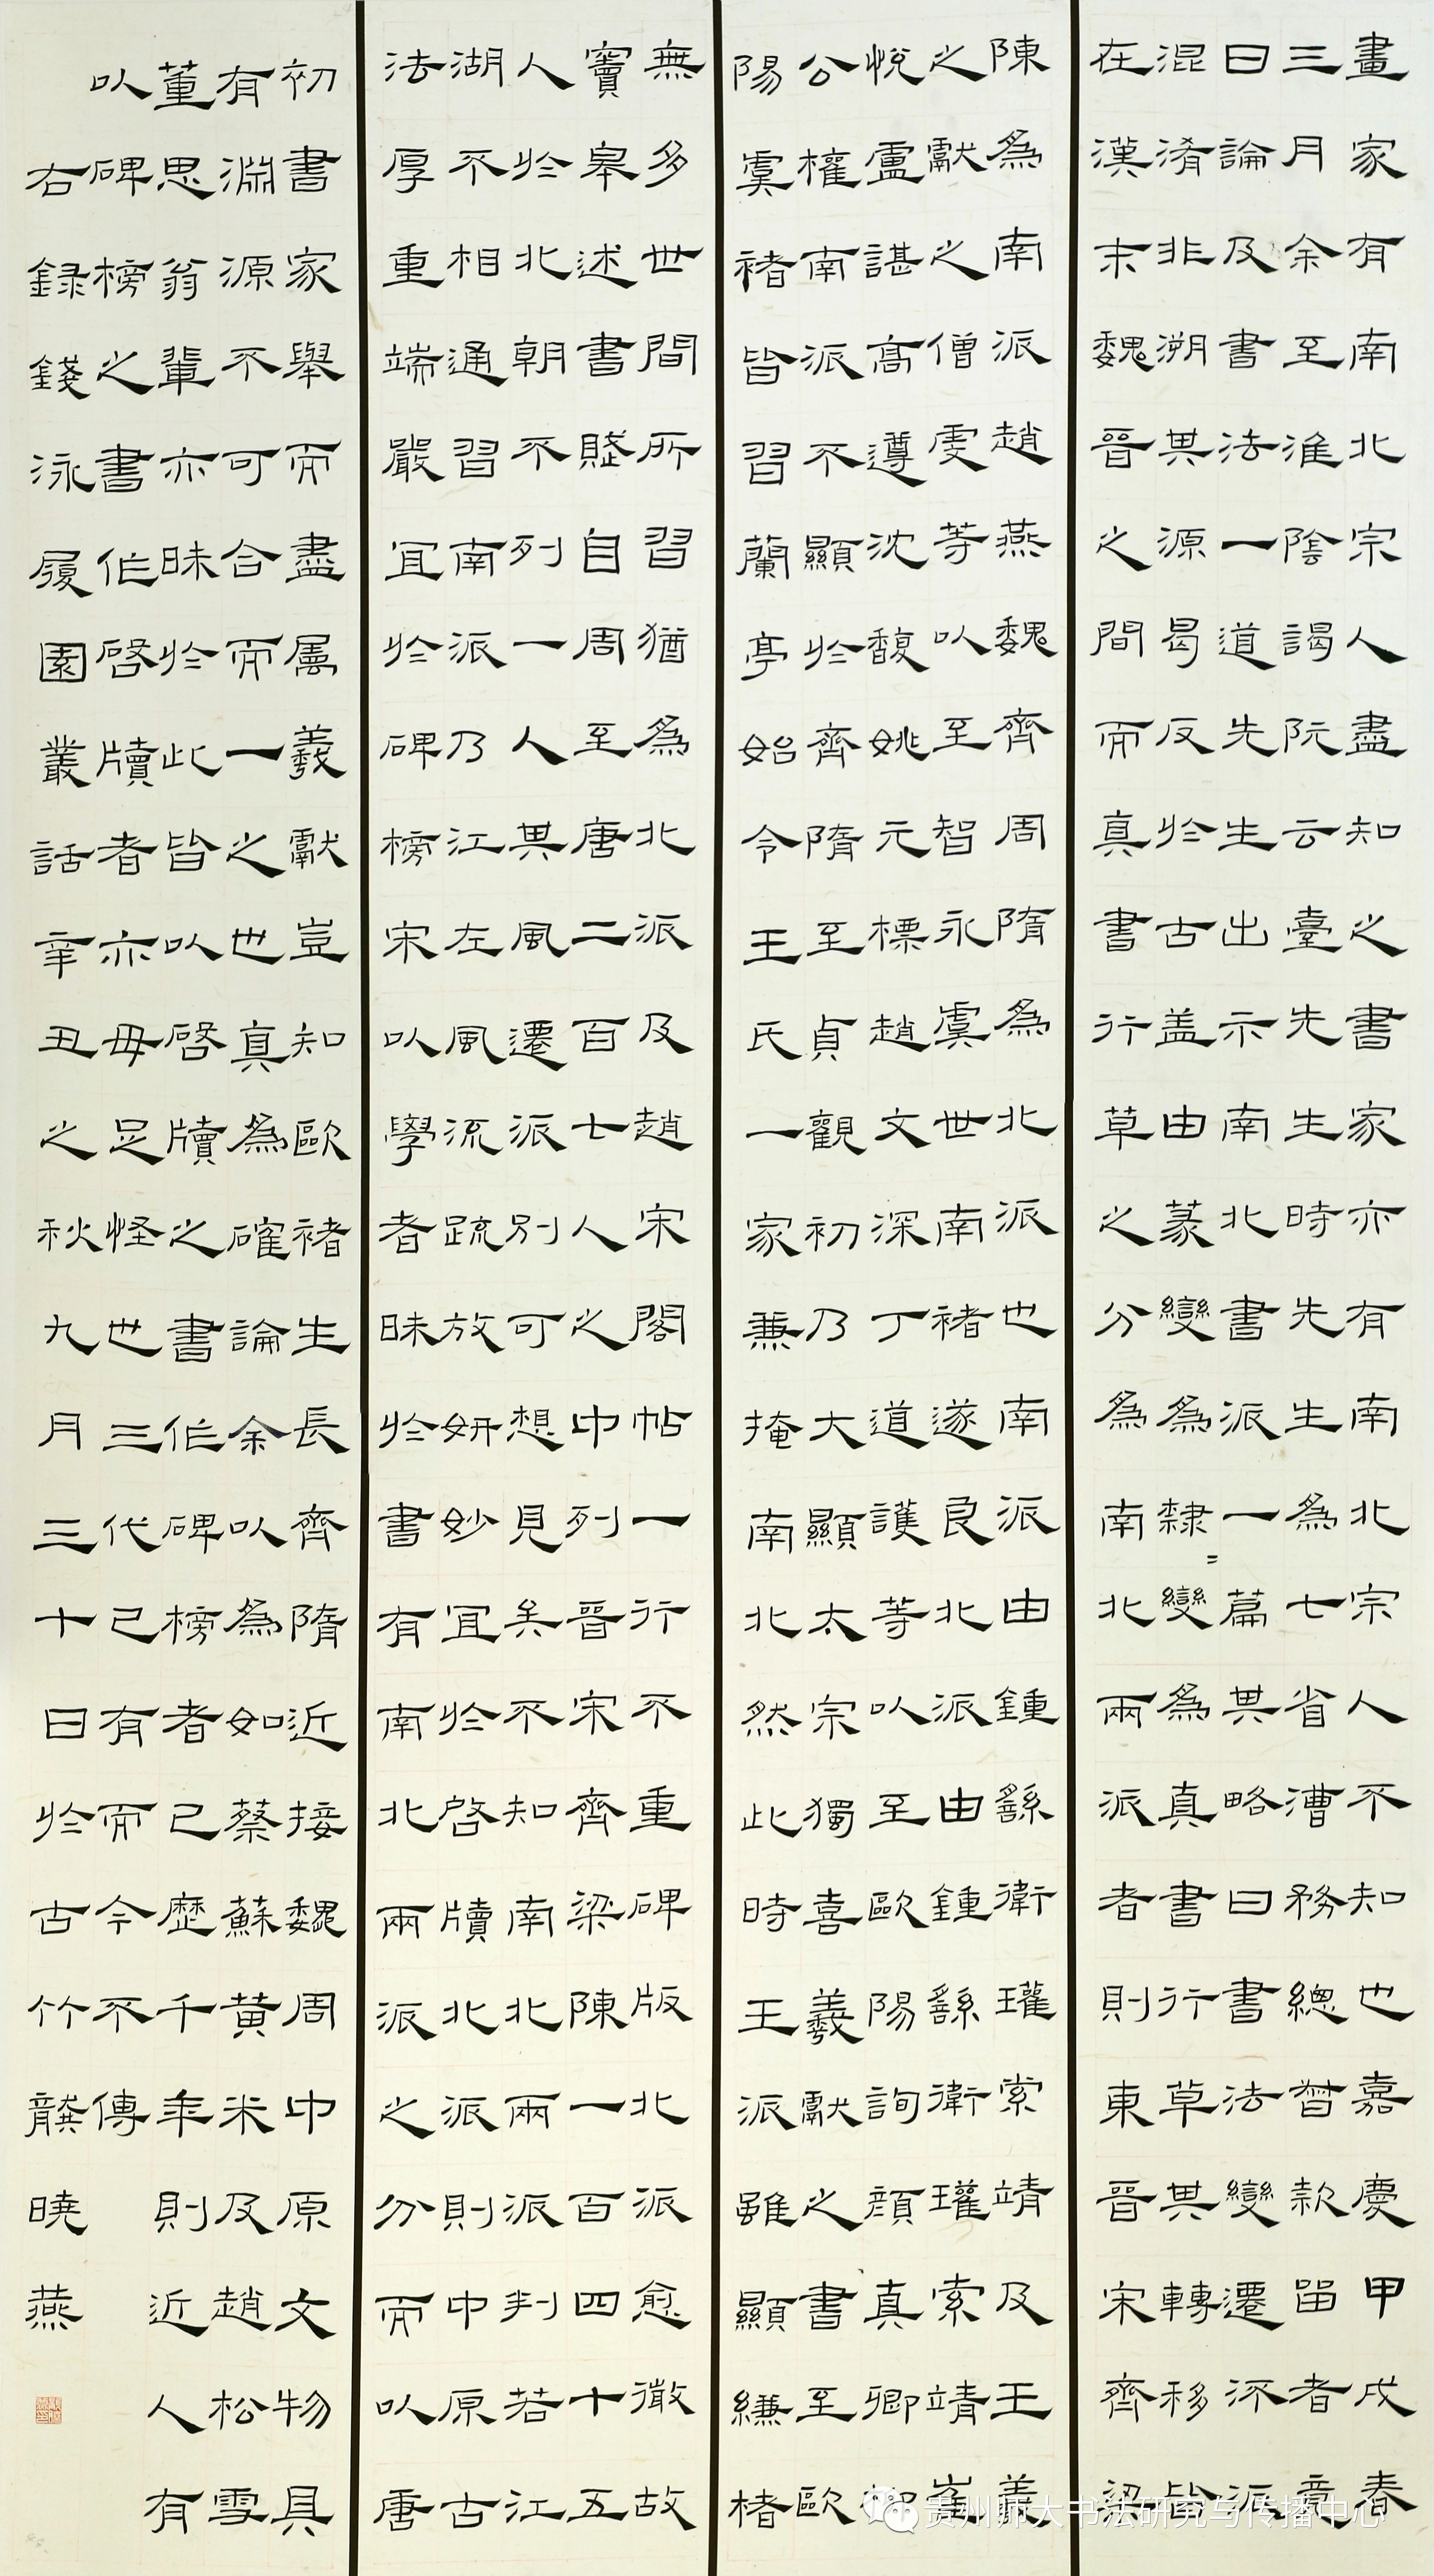 畫家有南北宗人盡知之書家亦有南北宗人不知也嘉慶甲戌春
三月余至淮陰謁阮云臺先生時先生為七省漕務總督款留者竟
日論及書法一道先生出示南北書派一篇其略曰書法變遷流派
混淆非溯其源曷反於古盖由篆變為隸〻變為真書行草其轉移皆
在漢末魏晉之間而真書行草之分為南北兩派者則東晉宋齊梁
陳為南派趙燕魏齊周隋為北派也南派由鍾繇衛瓘索靖及王羲
之獻之僧虔等以至智永虞世南褚遂良北派由鍾繇衛瓘索靖崔
悅盧諶高遵沈馥姚元標趙文深丁道護等以至歐陽詢顏真卿柳
公權南派不顯於齊隋至貞觀初乃大顯太宗獨喜羲獻之書至歐
陽虞褚皆習蘭亭始令王氏一家兼掩南北然此時王派雖顯縑楮
無多世間所習猶為北派及趙宋閣帖一行不重碑版北派愈微故
竇皋述書賦自周至唐二百七人之中列晉宋齊梁陳一百四十五
人於北朝不列一人其風遷派別可想見矣不知南北兩派判若江
湖不相通習南派乃江左風流疏放妍妙宜於啓牘北派則中原古
法厚重端嚴宜於碑榜宋以學者昧於書有南北兩派之分而以唐
初書家舉而盡属羲獻豈知歐褚生長齊隋近接魏周中原文物具
有淵源不可合而一之也真為確論余以為如蔡蘇黃米及趙松雪
董思翁輩亦昧於此皆以啓牘之書作碑榜者已歷千年則近人有
以碑榜之書作啓牘者亦毋足怪世三代已有而今不傳
右録錢泳履園叢話辛丑之秋九月三十日於古竹龔曉燕
贵州师大书法研究与传播中心